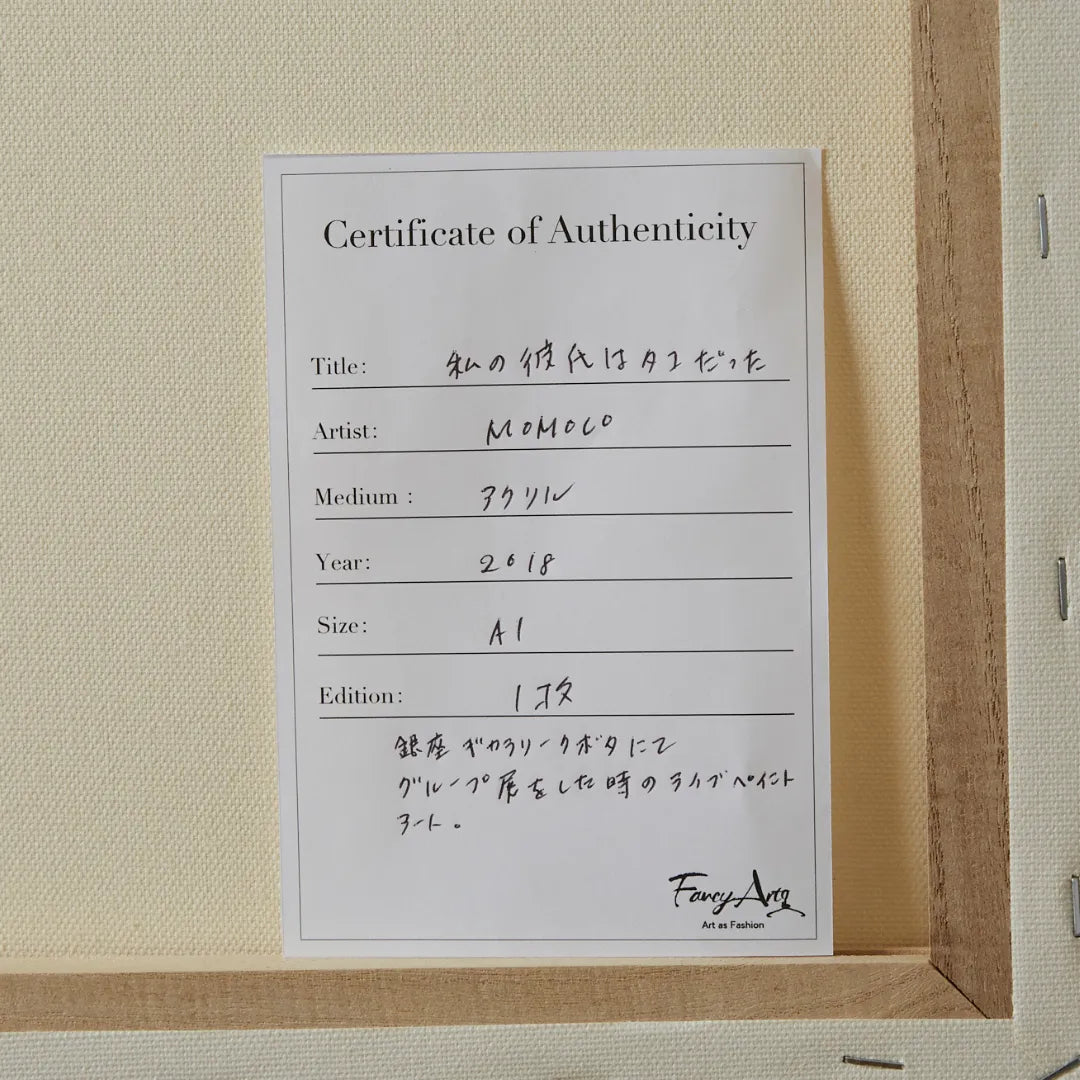 Certificate of Authenticity
Title: 私の彼氏はタコだった
Artist: MOMOCO
Medium : アクリル
Year: 2018
Size: A1
Edition: 1
銀座 ギャラリークボタにて
グループ展をした時のライブペイント
アート。
Fancy Arts
Art as Fashion